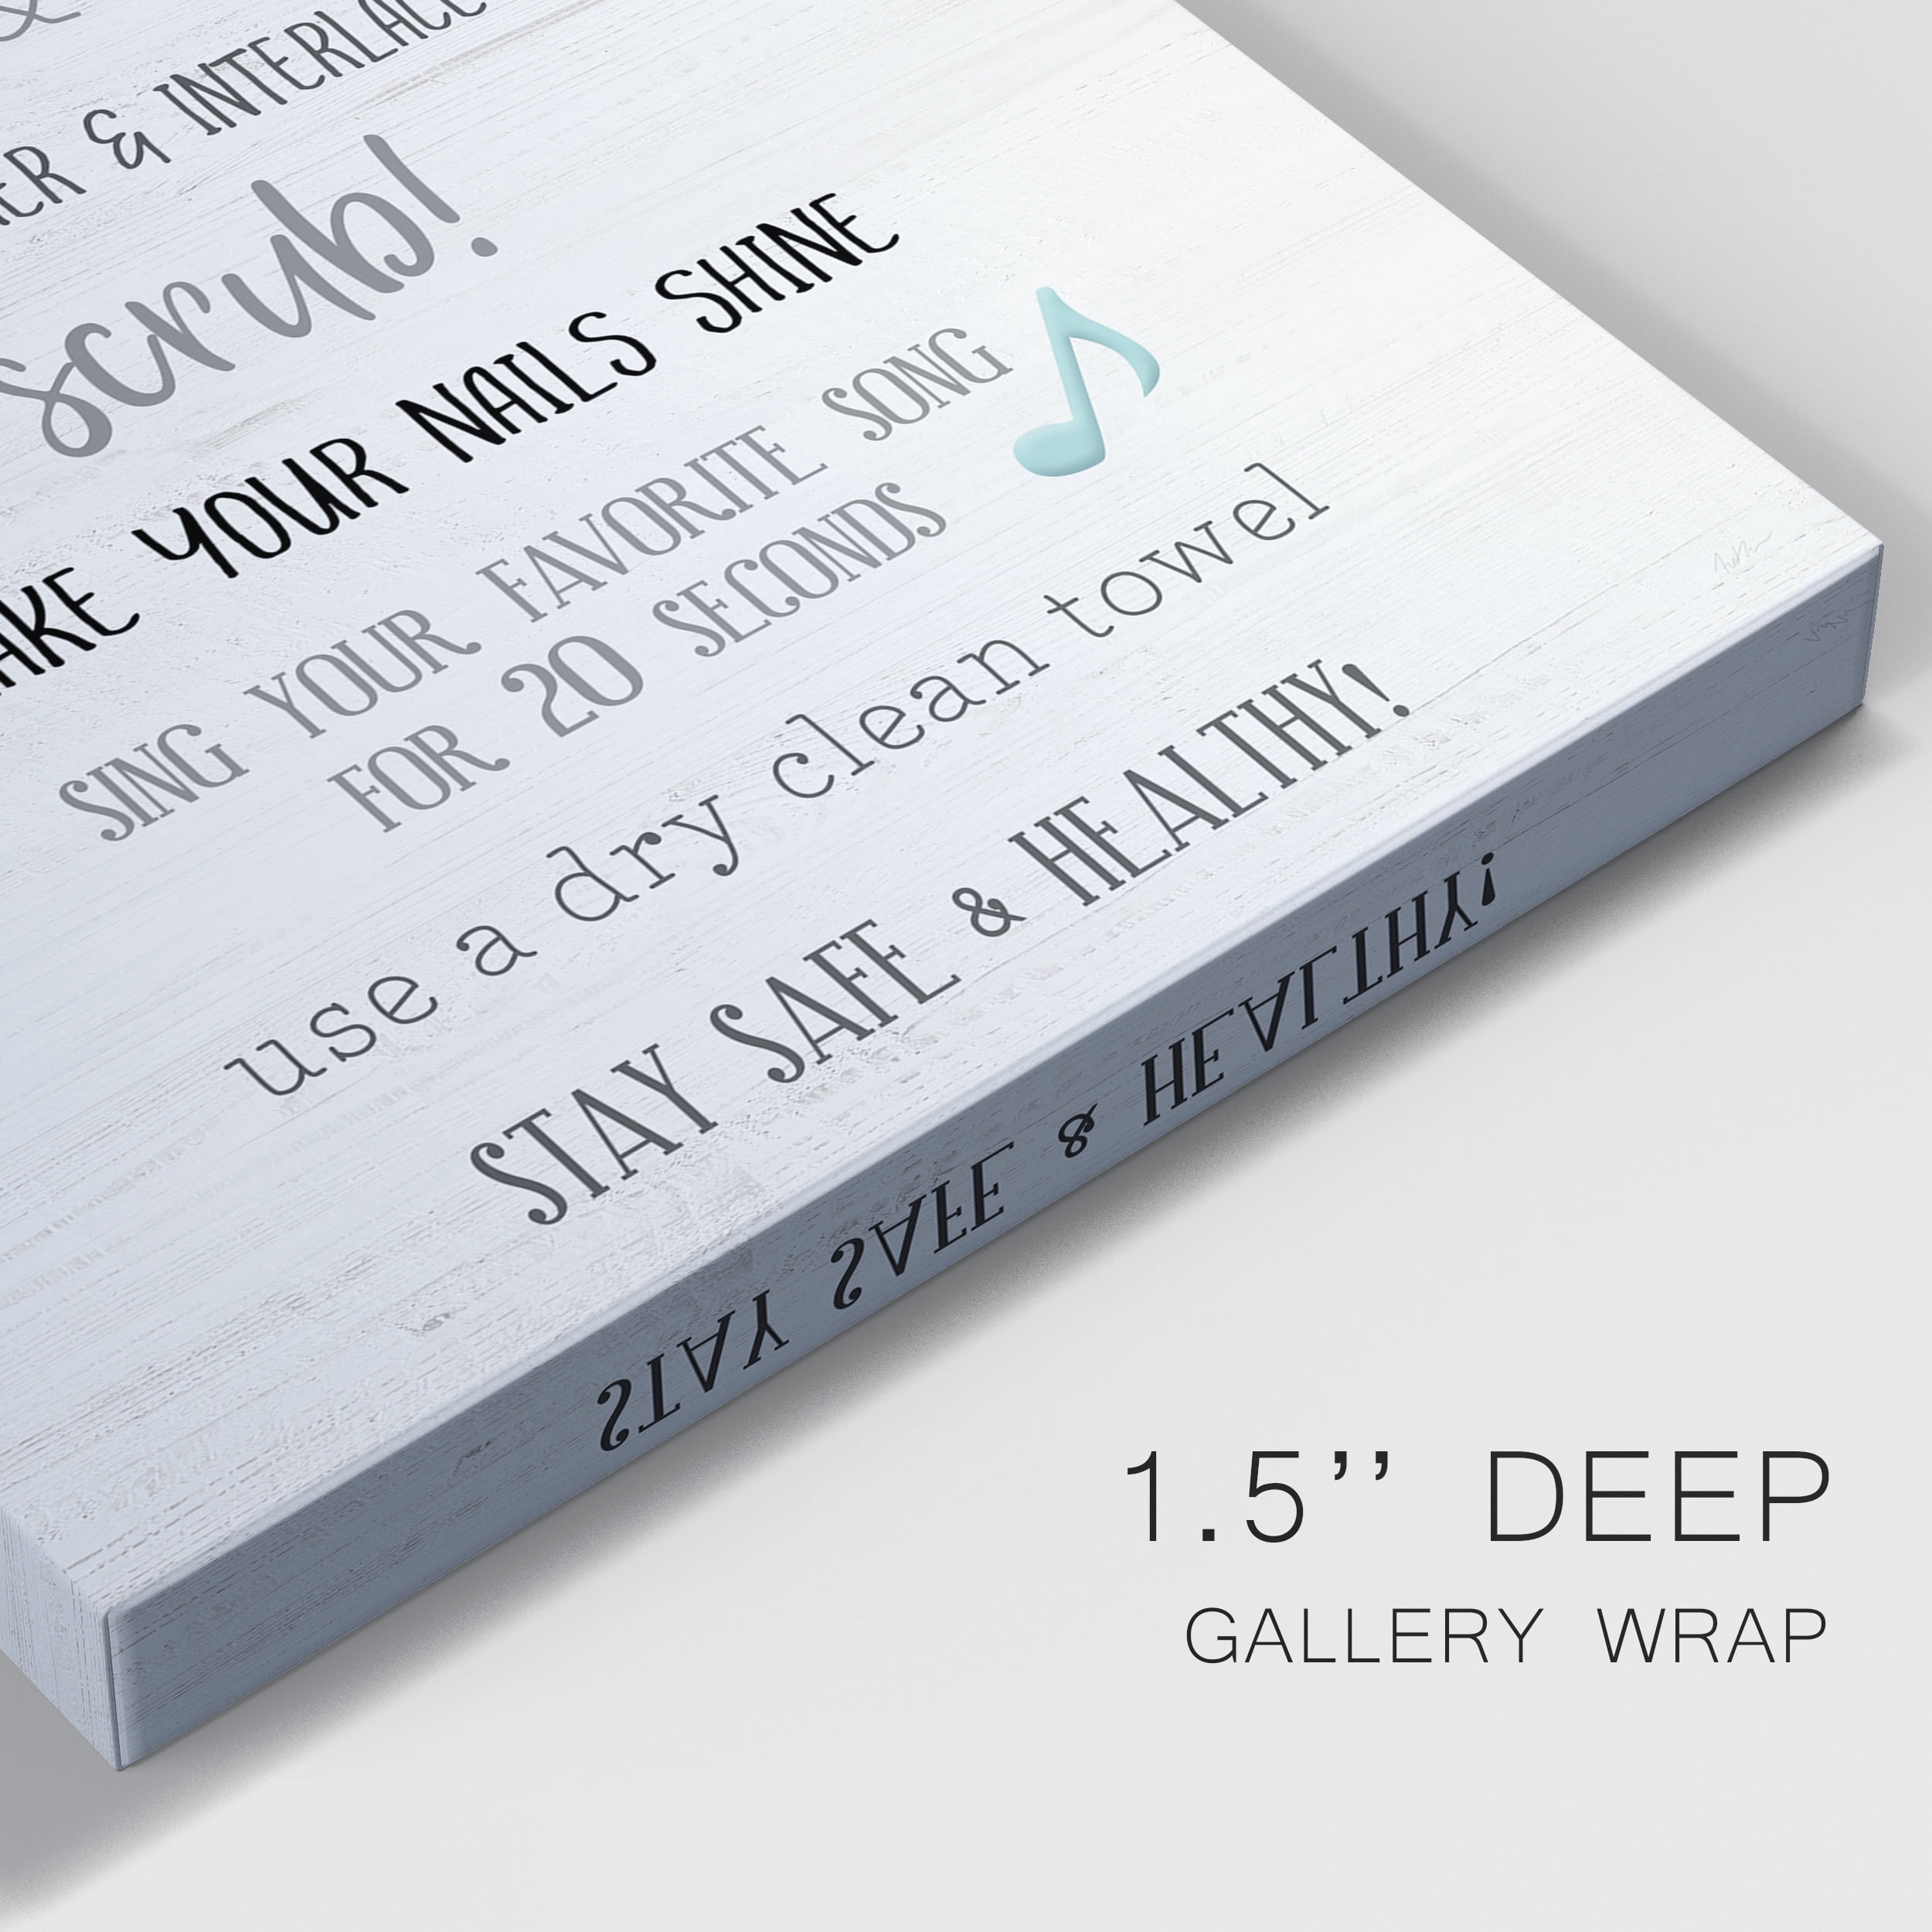 &
& INTERLACE
scrub!
YOUR NAILS SHINE
SING YOUR FAVORITE SONG
FOR 20 SECONDS
use a dry clean towel
STAY SAFE & HEALTHY!
STAY SAFE & HEALTHY!
1.5’’ DEEP
GALLERY WRAP